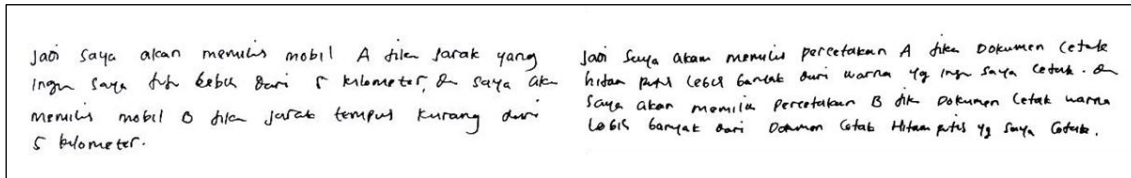 Jadi saya akan memilih mobil A jika jarak yang
ingin saya lebih dari 5 kilometer, dan saya akan
memilih mobil B jika jarak tempuh kurang dari
5 kilometer.
Jadi saya akan memilih percetakan A jika Dokumen cetak
hitam putih lebih banyak dari warna yg ingin saya cetak. dan
saya akan memilih percetakan B jika Dokumen cetak warna
lebih banyak dari Dokumen cetak Hitam putih yg saya cetak.